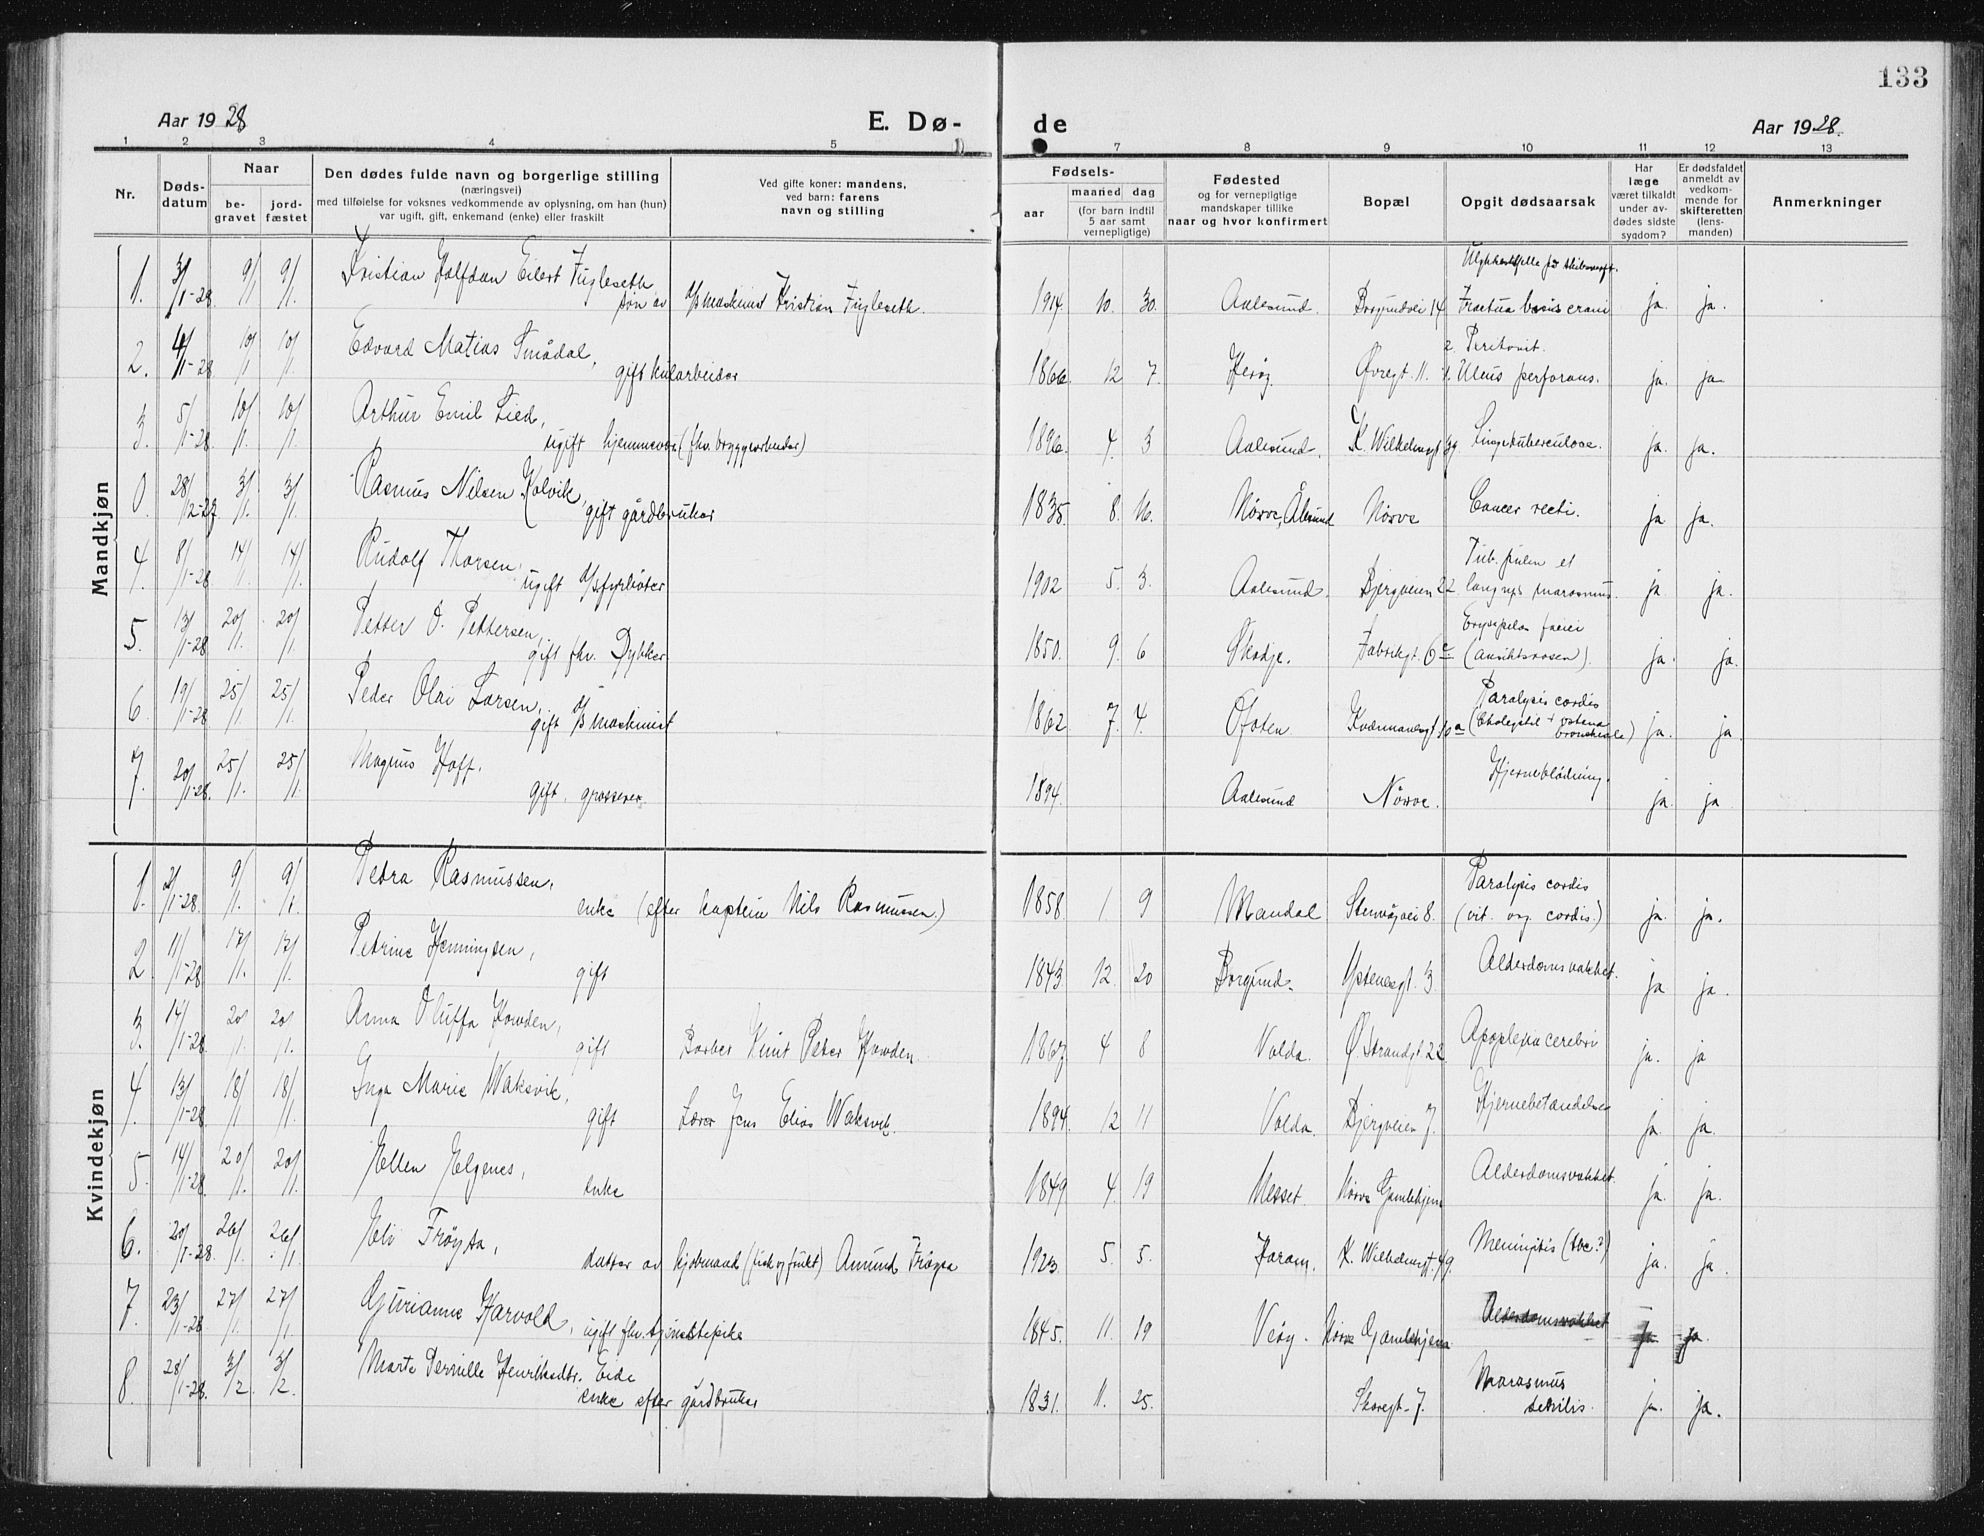 133
Aar 1928 E. Dø- de Aar 1928.
1 2 3 4 5 7 8 9 10 11 12 13
Nr. Døds-datum Naar be-gravet jord-fæstet Den dødes fulde navn og borgerlige stilling (næringsvei) med tilføielse for voksnes vedkommende av oplysning, om han (hun) var ugift, gift, enkemand (enke) eller fraskilt Ved gifte koner: mandens, ved barn: farens navn og stilling Fødsels- aar maaned dag (for barn indtil 5 aar samt vernepligtige) Fødested og for vernepligtige mandskaper tillike naar og hvor konfirmert Bopæl Opgit dødsaarsak Har læge været tilkaldt under av-dødes sidste sygdom? Er dødsfaldet anmeldt av vedkom-mende for skifteretten (lens-manden) Anmerkninger
Mandkjøn
1. 3/1-28 9/1 9/1 Kristian Halfdan Eilert Fugleseth
søn av d/s maskinist Kristian Fugleseth. 1914. 10. 30. Aalesund. Borgundvei 14 Fractua basis crani ja. ja.
2. 4/1-28 10/1 10/1. Edvard Matias Smådal,
gift kularbeider 1866. 12 7. Herøy Øvregt. 11. 2. Peritonit. 1. Ulcus perforans. ja. ja
3. 5/1-28. 10/1. 10/1. Arthur Emil Lied,
ugift hjemmevær. (fhv. bryggearbeider) 1896. 4. 3 Aalesund. K. Wilhelmsgt 39 Lungetuberculose. ja. ja.
0. 28/12-27. 3/1. 3/1. Rasmus Nilsen Kolvik,
gift gårdbruker 1835. 8. 16. Nørve, Ålesund Nørve Cancer recti. ja ja.
4. 8/1-28 14/1. 14/1. Rudolf Thorsen,
ugift d/s fyrbøter 1902 5. 3. Aalesund. Bjergveien 22. Tub. pulm et laryngs marasmus. ja ja.
5. 13/1-28 20/1. 20/1. Petter O. Pettersen,
gift fhv. Dykker 1850. 9. 6 Skodje. Fabrikgt. 6c Erysipelas faciei (ansiktsrosen). ja. ja.
6. 19/1-28 25/1. 25/1. Peder Olai Larsen,
gift d/s maskinist 1862 7. 4. Ofoten Kvernavegt 10a Paralysis cordis ja. ja.
7. 20/1-28. 25/1. 25/1. Magnus Hoff.
gift, grosserer. 1894. Aalesund Nørve. Hjerneblødning. ja. ja
Kvindekjøn
1. 2/1-28. 9/1. 9/1. Petra Rasmussen,
enke (efter kaptein Nils Rasmussen.) 1858. 1. 9 Mandal Stenvågvei 8. Paralysis cordis (vit. org. cordis.) ja. ja.
2 11/1-28 17/1. 17/1. Petrine Henningsen,
gift 1843. 12. 20 Borgund. Ystenesgt. 3. Alderdomsvakhet. ja ja.
3. 14/1-28. 20/1. 20/1. Anna Oluffa Howden,
gift Barber Knut Peter Howden. 1867 4 8 Volda. Ø. Strandgt. 22 Apoplexia cerebri ja. ja
4. 13/1-28 18/1 18/1. Inga Marie Waksvik,
gift Lærer Jens Elias Waksvik. 1894. 12 11 Volda. Bjergveien 7. Hjernebetændelse ja. ja.
5. 14/1-28 20/1. 20/1. Ellen Helgenes,
enke 1849 4. 19 Nesset. Nørve Gamlehjem Alderdomsvakhet ja. ja.
6. 20/1-28. 26/1. 26/1. Eli Frøysa,
datter av kjøbmand (fisk og frukt) Amund Frøysa 1923. 5. 5. Haram. K. Wilhelmsgt. 49. Meningitis (tbc?) ja. ja.
7. 23/1-28 27/1. 27/1. Gurianne Harvold,
ugift fhv. tjenestepike 1845. 11. 19 Veøy. Nørve Gamlehjem Alderdomsvakhet ja ja.
8. 28/1-28. 3/2. 3/2. Marte Pernille Henriksdtr. Eide
enke efter gårdbruker 1831. 11. 25. Skaregt. 7. Marasmus senilis. ja. ja.